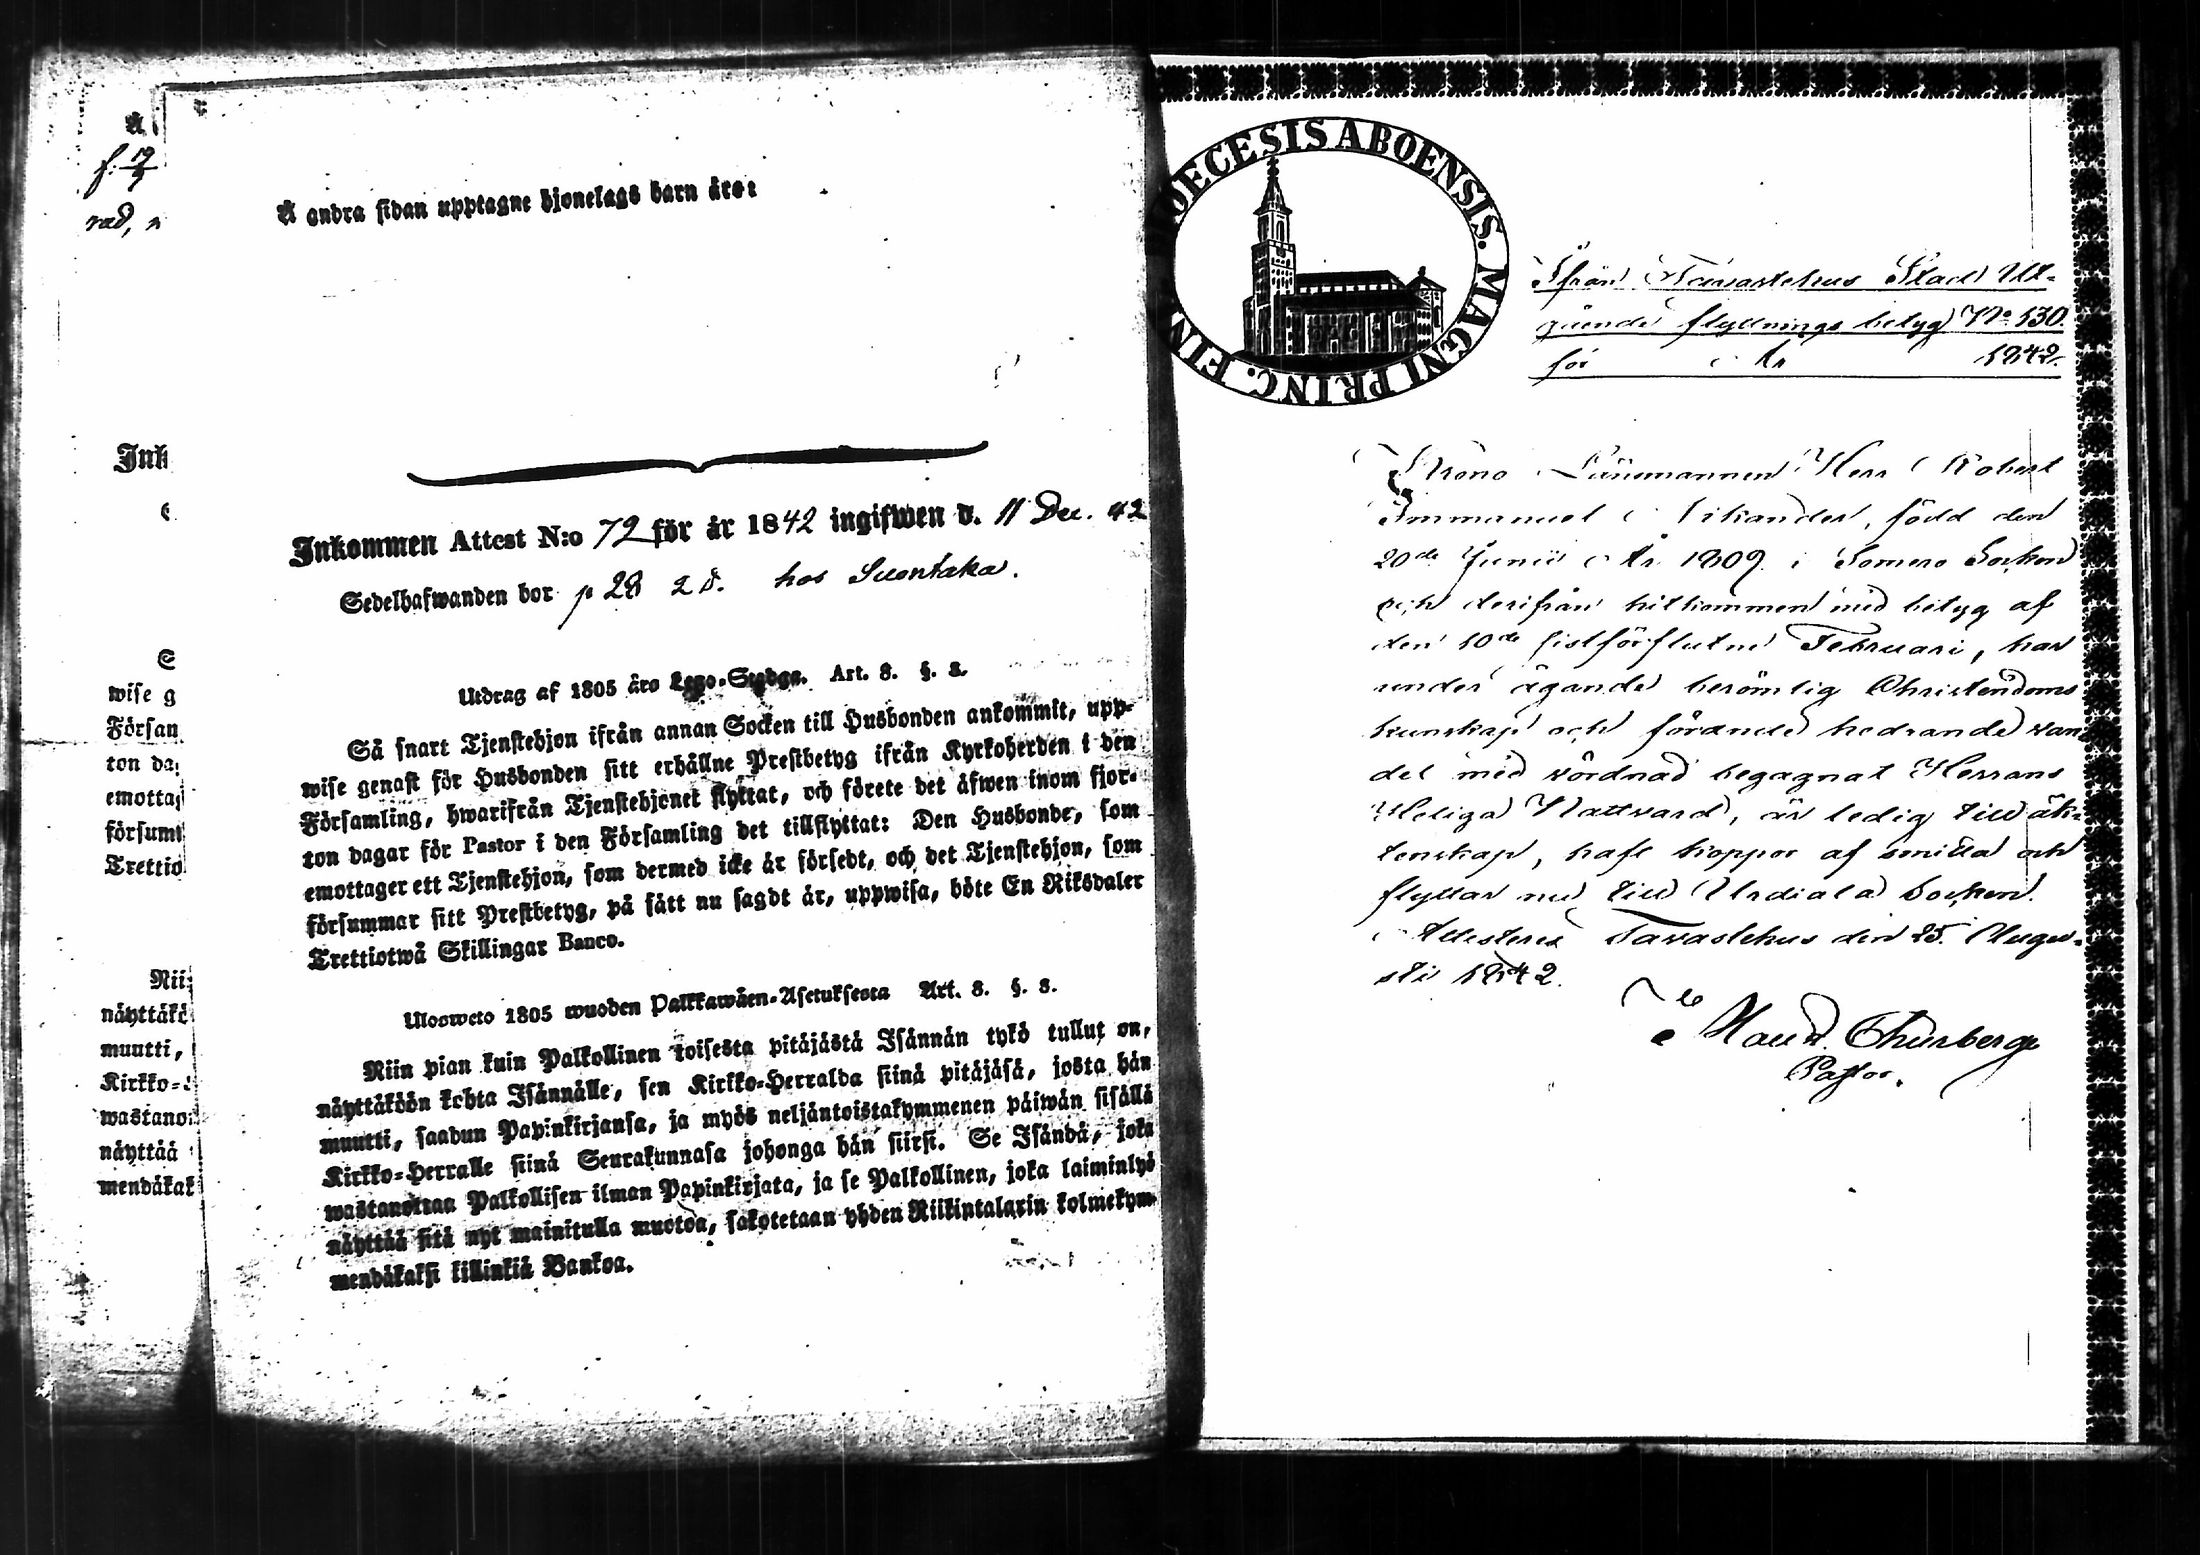 Å
f. 19/9
rad,
Ink
wise g
Försan
ton da
emottag
försumt
Trettio
Nii
näyttäkö
muutti,
Kirkko-
wastano
näyttää
mendäkak
Å andra sidan upptagne hjonelags barn äro:
Inkommen Attest N:o 72 för år 1842 ingifwen d. 11 Dec. 42
Sedelhafwanden bor p 28 2 d. hos Suontaka.
Utdrag af 1805 års Lego-Stadga. Art. 8. §. 2.
Så snart Tjenstehjon ifrån annan Socken till Husbonden ankommit, upp-
wise genast för Husbonden sitt erhållne Prestbetyg ifrån Kyrkoherden i den
Församling, hwarifrån Tjenstehjonet flyttat, och förete det äfwen inom fjor-
ton dagar för Pastor i den Församling det tillflyttat: Den Husbonde, som
emottager ett Tjenstehjon, som dermed icke är försedt, och det Tjenstehjon, som
försummar sitt Prestbetyg, på sätt nu sagdt är, uppwisa, böte En Riksdaler
Trettiotwå Skillingar Banco.
Ulosweto 1805 wuoden Palkkawäen-Asetuksesta Art. 8. §. 8.
Niin pian kuin Palkollinen toisesta pitäjästä Isännän tykö tullut on,
näyttäköön kohta Isännälle, sen Kirkko-Herralda siinä pitäjäsä, josta hän
muutti, saadun Papinkirjansa, ja myös neljäntoistakymmenen päiwän sisällä
Kirkko-Herralle siinä Seurakunnasa johonga hän siirsi. Se Isändä, joka
wastanottaa Palkollisen ilman Papinkirjata, ja se Palkollinen, joka laiminlyö
näyttää sitä nyt mainitulla muotoa, sakotetaan yhden Riikintalarin kolmekym-
mendäkaksi killinkiä Bankoa.
OECESIS ABOENSIS. MAGNI PRINC. FIN
Ifrån Tavastehus Stad Ut-
gående flyttnings betyg No 130.
för År 1842.
Krono Länsmannen Herr Robert
Immanuel Vikander, född den
20de Junii År 1809 i Somero Socken
och derifrån hitkommen med betyg af
den 10de sistförflutne Februari, har
under ägande berömlig Christendoms
kunskap och förande hedrande van
del med vördnad begagnat Herrans
Heliga Nattvard, är ledig till äk-
tenskap, haft koppor af smitta och
flyttar nu till Urdiala Socken.
Attesteres Tavastehus den 25. Augu-
sti 1842.
Thunberg
Pastor.